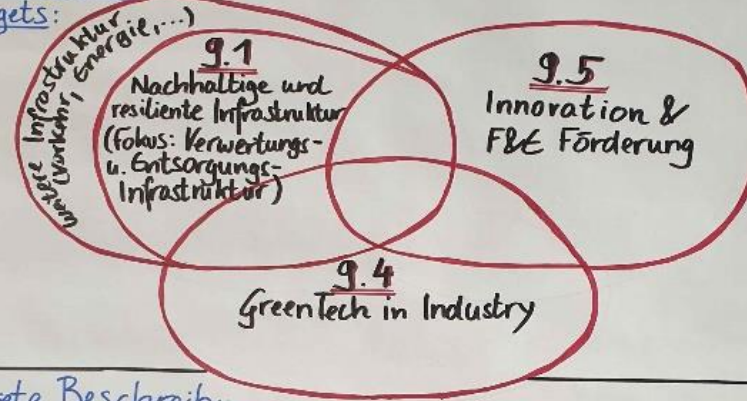 gets:
weitere Infrastruktur
(Verkehr, Energie,...)
9.1
Nachhaltige und
resiliente Infrastruktur
(Fokus: Verwertungs-
u. Entsorgungs-
Infrastruktur)
9.5
Innovation &
F&E Förderung
9.4
GreenTech in Industry